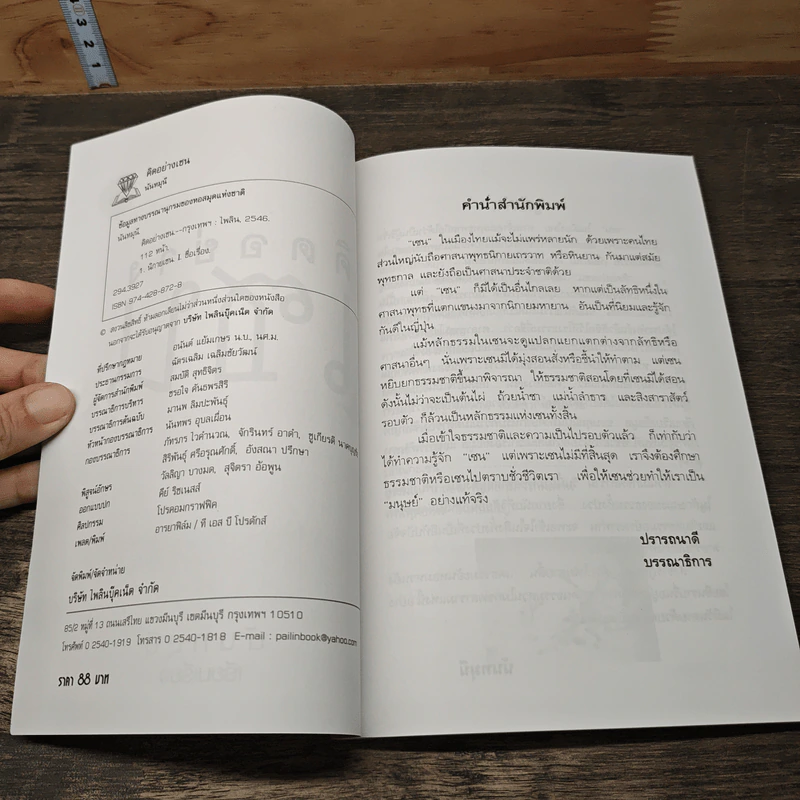 3
2
1
คิดอย่างเซน
นันทมุนี
ข้อมูลทางบรรณานุกรมของหอสมุดแห่งชาติ
นันทมุนี
คิดอย่างเซน.--กรุงเทพฯ : ไพลิน, 2546.
112 หน้า.
1. นิกายเซน I. ชื่อเรื่อง.
294.3927
ISBN: 974-429-972-9
© สงวนลิขสิทธิ์ ห้ามลอกเลียนไม่ว่าส่วนหนึ่งส่วนใดของหนังสือ
นอกจากจะได้รับอนุญาตจาก บริษัท ไพลินบุ๊คเน็ต จำกัด
ที่ปรึกษากฎหมาย อนันต์ แย้มเกษร น.บ., น.ศ.ม.
ประธานกรรมการ ฉัตรเฉลิม เฉลิมชัยวัฒน์
ผู้จัดการสำนักพิมพ์ สมบัติ สุทธิจิตร
บรรณาธิการบริหาร ธรอใจ คันธพรสิริ
บรรณาธิการต้นฉบับ มานพ ลิมปะพันธุ์
หัวหน้ากองบรรณาธิการ นันทพร อุบลเผื่อน
กองบรรณาธิการ ภัทรภร ไวคำนวณ, จักรินทร์ อาดำ, ชูเกียรติ
สิริพันธุ์ ศรีอรุณศักดิ์, อังสณา ปรึกษา
พิสูจน์อักษร วัลลิญา บางมด, สุจิตรา อ้อพูน
ออกแบบปก ดีย์ ริชเนสส์
ศิลปกรรม โปรดอมกราฟฟิค
เพลต/พิมพ์ อารยาฟิล์ม / ที เอส บี โปรดักส์
จัดพิมพ์/จัดจำหน่าย
บริษัท ไพลินบุ๊คเน็ต จำกัด
85/2 หมู่ที่ 13 ถนนเสรีไทย แขวงมีนบุรี เขตมีนบุรี กรุงเทพฯ 10510
โทรศัพท์ 0 2540-1919 โทรสาร 0 2540-1818 E-mail : pailinbook@yahoo.com
ราคา 88 บาท
คำนำสำนักพิมพ์
"เซน" ในเมืองไทยแม้จะไม่แพร่หลายนัก ด้วยเพราะคนไทย
ส่วนใหญ่นับถือศาสนาพุทธนิกายเถรวาท หรือหินยาน กันมาแต่สมัย
พุทธกาล และยังถือเป็นศาสนาประจำชาติด้วย
แต่ "เซน" ก็มิได้เป็นอื่นไกลเลย หากแต่เป็นลัทธิหนึ่งใน
ศาสนาพุทธที่แตกแขนงมาจากนิกายมหายาน อันเป็นที่นิยมและรู้จัก
กันดีในญี่ปุ่น
แม้หลักธรรมในเซนจะดูแปลกแยกแตกต่างจากลัทธิหรือ
ศาสนาอื่นๆ นั่นเพราะเซนมิได้มุ่งสอนสั่งหรือชี้นำให้ทำตาม แต่เซน
หยิบยกธรรมชาติขึ้นมาพิจารณา ให้ธรรมชาติสอนโดยที่เซนมิได้สอน
ดังนั้นไม่ว่าจะเป็นต้นไผ่ ถ้วยน้ำชา แม่น้ำลำธาร และสิงสาราสัตว์
รอบตัว ก็ล้วนเป็นหลักธรรมแห่งเซนทั้งสิ้น
เมื่อเข้าใจธรรมชาติและความเป็นไปรอบตัวแล้ว ก็เท่ากับว่า
ได้ทำความรู้จัก "เซน" แต่เพราะเซนไม่มีที่สิ้นสุด เราจึงต้องศึกษา
ธรรมชาติหรือเซนไปตราบชั่วชีวิตเรา เพื่อให้เซนช่วยทำให้เราเป็น
"มนุษย์" อย่างแท้จริง
ปรารถนาดี
บรรณาธิการ